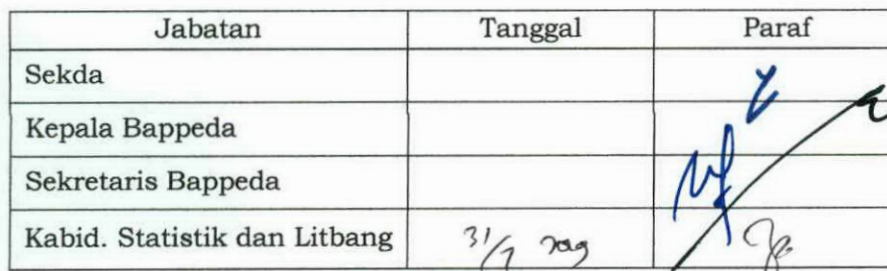 Jabatan Tanggal Paraf
Sekda
Kepala Bappeda
Sekretaris Bappeda
Kabid. Statistik dan Litbang